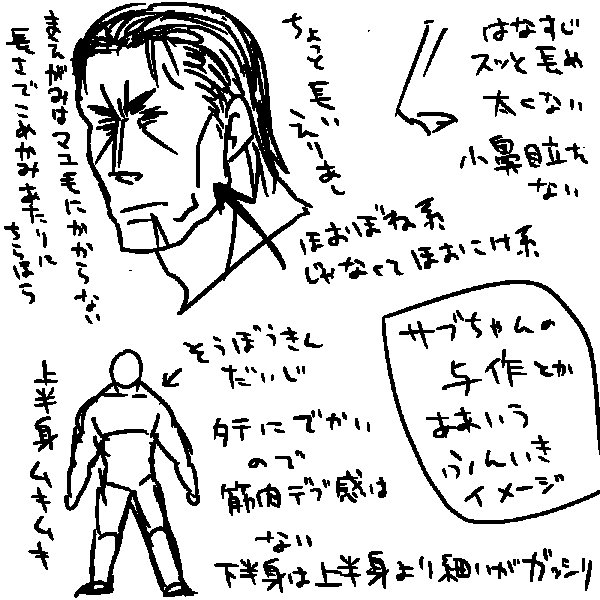 まえがみはマユ毛にかからない
長さでこめかみあたりに
ちらほら
ちょっと長い
えりあし
はなすじ
スッと長め
太くない
小鼻目立た
ない
ほおぼね系
じゃなくてほおこけ系
サブちゃんの
与作とか
ああいう
ふんいき
イメージ
そうぼうきん
だいじ
上半身ムキムキ
タテにでかい
ので
筋肉デブ感は
ない
下半身は上半身より細いがガッシリ